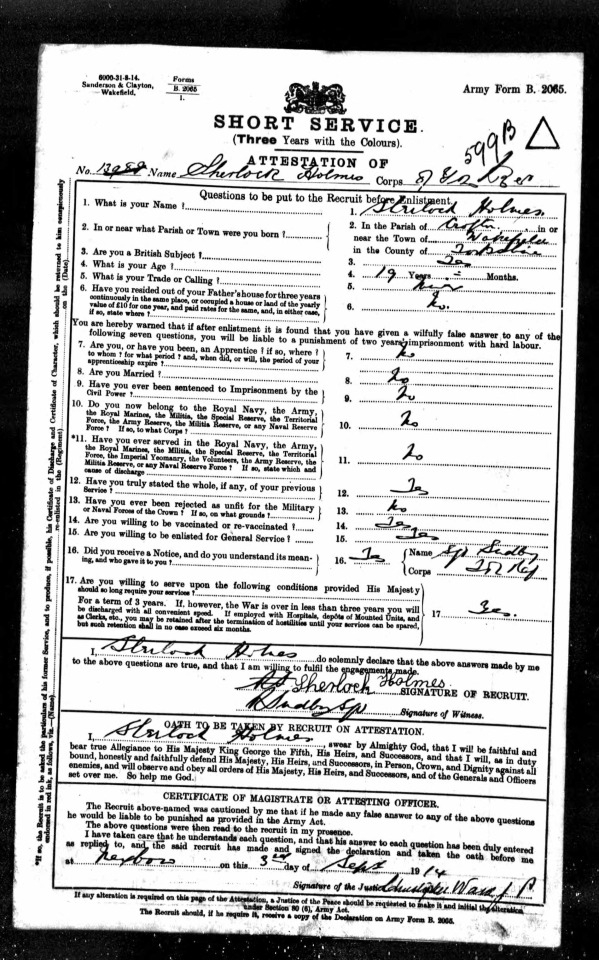 6000-31-8-14.
Sanderson & Clayton,
Wakefield.
Forms
B. 2065
1.
Army Form B. 2065.
SHORT SERVICE.
(Three Years with the Colours).
599B
ATTESTATION OF
No. Name Sherlock Holmes Corps
Questions to be put to the Recruit before Enlistment.
1. What is your Name ? 1. Sherlock Holmes
2. In or near what Parish or Town were you born ? 2. In the Parish of Crofton in or
near the Town of Wakefield
in the County of Yorkshire
3. Are you a British Subject ? 3. Yes
4. What is your Age ? 4. 19 Years — Months.
5. What is your Trade or Calling ? 5.
6. Have you resided out of your Father's house for three years
continuously in the same place, or occupied a house or land of the yearly
value of £10 for one year, and paid rates for the same, and, in either case,
if so, state where ? 6. No.
You are hereby warned that if after enlistment it is found that you have given a wilfully false answer to any of the
following seven questions, you will be liable to a punishment of two years imprisonment with hard labour.
7. Are you, or have you been, an Apprentice ? if so, where ?
to whom ? for what period ? and, when did, or will, the period of your
apprenticeship expire ? 7. No
8. Are you Married ? 8. No
9. Have you ever been sentenced to Imprisonment by the
Civil Power ? 9. No
10. Do you now belong to the Royal Navy, the Army,
the Royal Marines, the Militia, the Special Reserve, the Territorial
Force, the Army Reserve, the Militia Reserve, or any Naval Reserve
Force ? If so, to what Corps ? 10. No
*11. Have you ever served in the Royal Navy, the Army,
the Royal Marines, the Militia, the Special Reserve, the Territorial
Force, the Imperial Yeomanry, the Volunteers, the Army Reserve, the
Militia Reserve, or any Naval Reserve Force ? If so, state which and
cause of discharge 11. No
12. Have you truly stated the whole, if any, of your previous
Service ? 12. Yes
13. Have you ever been rejected as unfit for the Military
or Naval Forces of the Crown ? If so, on what grounds ? 13. No
14. Are you willing to be vaccinated or re-vaccinated ? 14. Yes
15. Are you willing to be enlisted for General Service ? 15. Yes
16. Did you receive a Notice, and do you understand its mean-
ing, and who gave it to you ? 16. Yes Name
Corps
17. Are you willing to serve upon the following conditions provided His Majesty
should so long require your services ?
For a term of 3 years. If, however, the War is over in less than three years you will
be discharged with all convenient speed. If employed with Hospitals, depôts of Mounted Units, and
as Clerks, etc., you may be retained after the termination of hostilities until your services can be spared,
but such retention shall in no case exceed six months. 17 Yes.
I, Sherlock Holmes do solemnly declare that the above answers made by me
to the above questions are true, and that I am willing to fulfil the engagements made.
Sherlock Holmes SIGNATURE OF RECRUIT.
Signature of Witness.
OATH TO BE TAKEN BY RECRUIT ON ATTESTATION.
I, Sherlock Holmes, swear by Almighty God, that I will be faithful and
bear true Allegiance to His Majesty King George the Fifth, His Heirs, and Successors, and that I will, as in duty
bound, honestly and faithfully defend His Majesty, His Heirs, and Successors, in Person, Crown, and Dignity against all
enemies, and will observe and obey all orders of His Majesty, His Heirs, and Successors, and of the Generals and Officers
set over me. So help me God.
CERTIFICATE OF MAGISTRATE OR ATTESTING OFFICER.
The Recruit above-named was cautioned by me that if he made any false answer to any of the above questions
he would be liable to be punished as provided in the Army Act.
The above questions were then read to the recruit in my presence.
I have taken care that he understands each question, and that his answer to each question has been duly entered
as replied to, and the said recruit has made and signed the declaration and taken the oath before me
at on this 3rd day of Sept 1914
Signature of the Justice
If any alteration is required on this page of the Attestation, a Justice of the Peace should be requested to make it and initial the alteration
under Section 80 (6), Army Act.
The Recruit should, if he require it, receive a copy of the Declaration on Army Form B. 2065.
*If so, the Recruit is to be asked the particulars of his former Service, and to produce, if possible, his Certificate of Discharge and Certificate of Character, which should be returned to him conspicuously
endorsed in red ink, as follows, viz.—(Name) re-enlisted in the (Regiment) on the (Date)